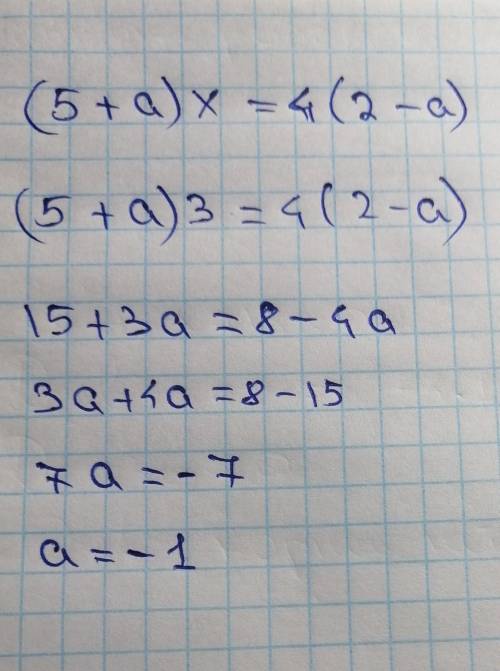 (5 + a) x = 4 (2 - a)
(5 + a) 3 = 4 (2 - a)
15 + 3a = 8 - 4a
3a + 4a = 8 - 15
7a = - 7
a = - 1